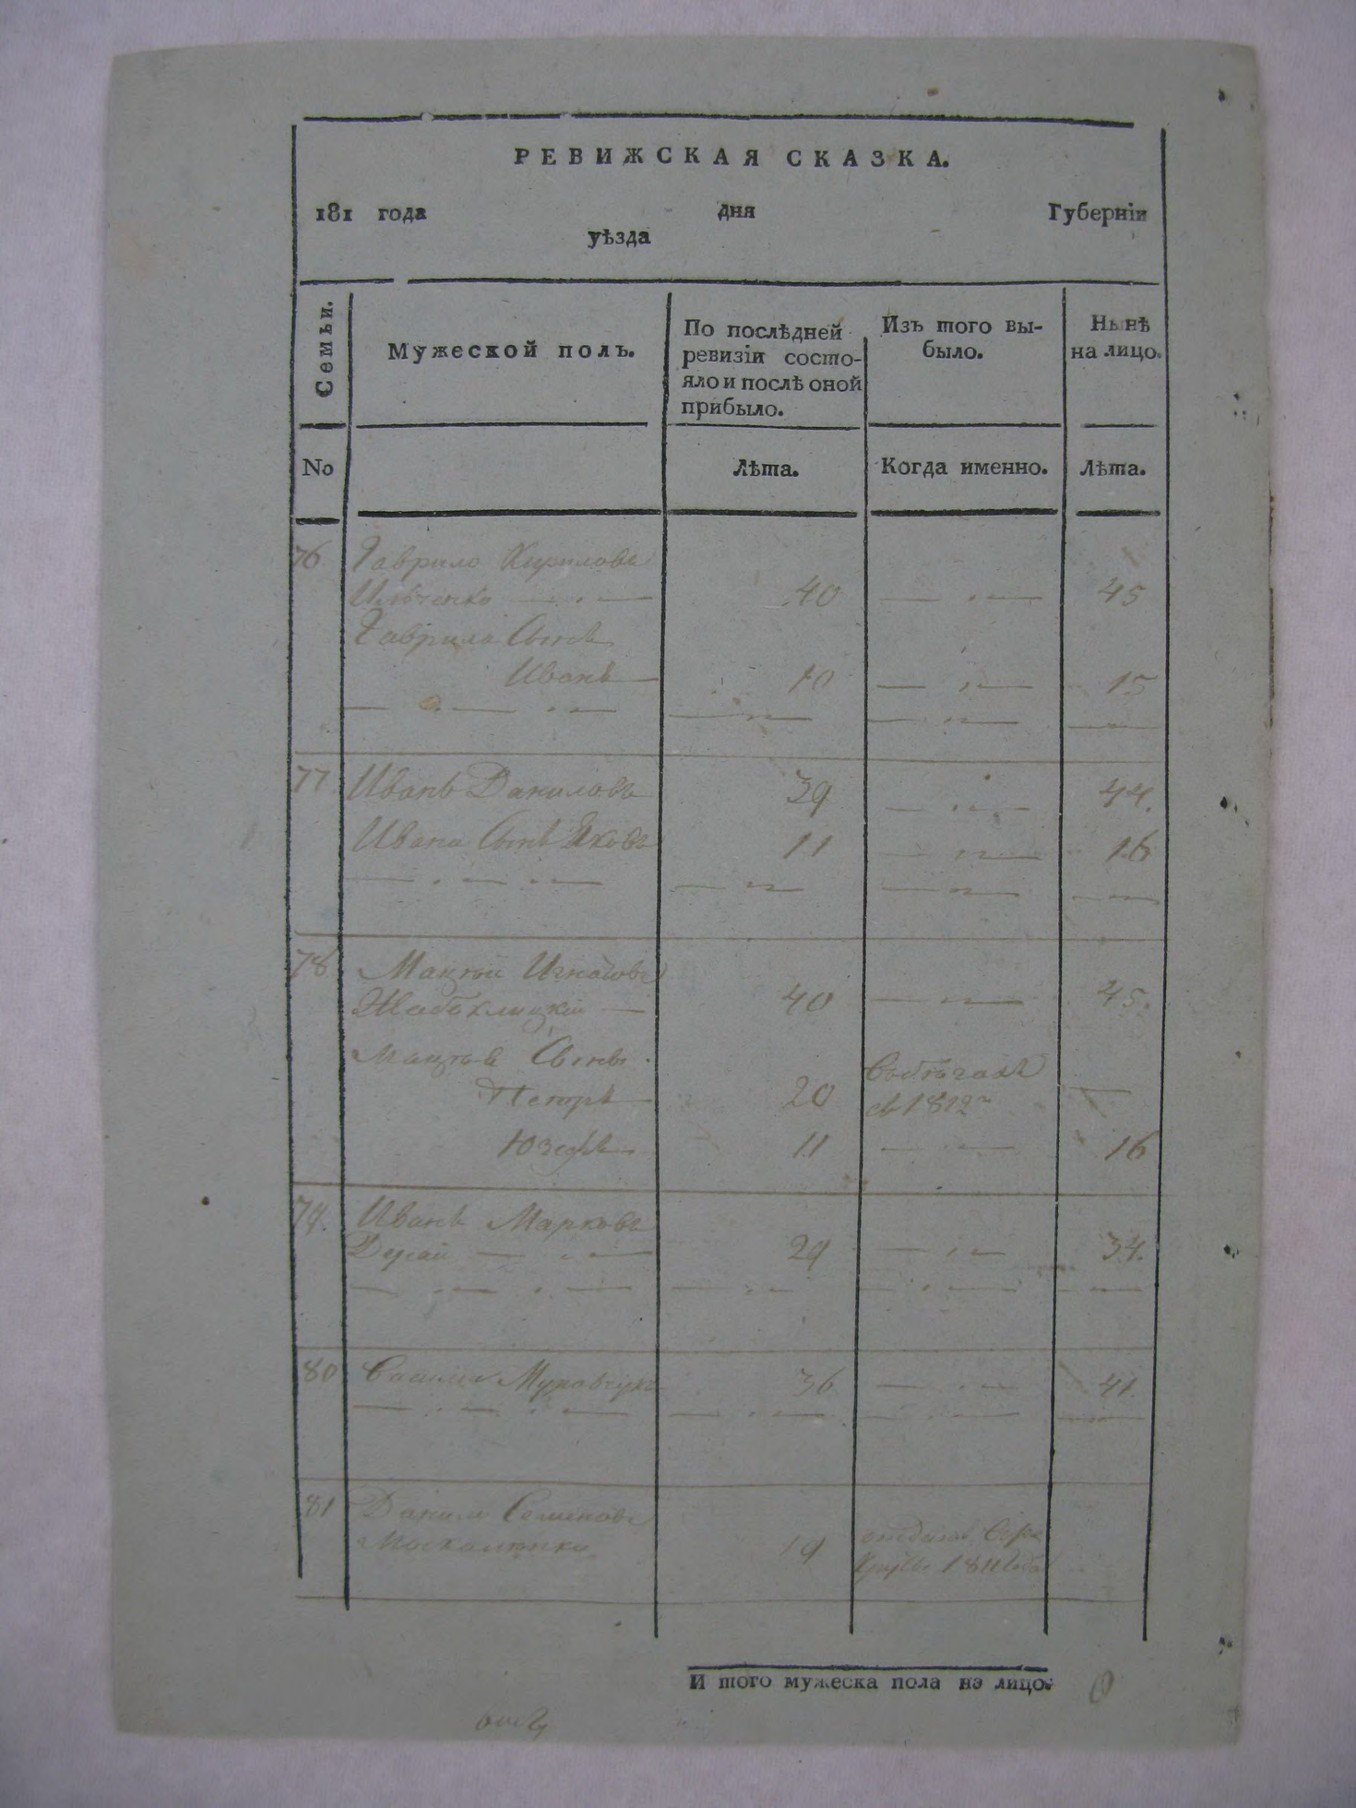 РЕВИЖСКАЯ СКАЗКА.
181 года дня Губерніи
уѣзда
Семьи.
Мужеской полъ.
По послѣдней
ревизіи состо-
яло и послѣ оной
прибыло.
Изъ того вы-
было.
Нынѣ
на лицо.
No
Лѣта.
Когда именно.
Лѣта.
76 Гаврило Кириловъ
Ильченко 40 45
Гаврила Сынъ
Иванъ 10 15
77 Иванъ Даниловъ 39 44.
Ивана Сынъ Яковъ 11 16
78 Мацѣй Игнатовъ
40 45.
Мацѣя Сынъ
Петръ 20
въ 1812
Юзефъ 11 16
79. Иванъ Марковъ
29 34.
80 36 41.
81 Данило Семеновъ
19
1811 года
И того мужеска пола на лицо.